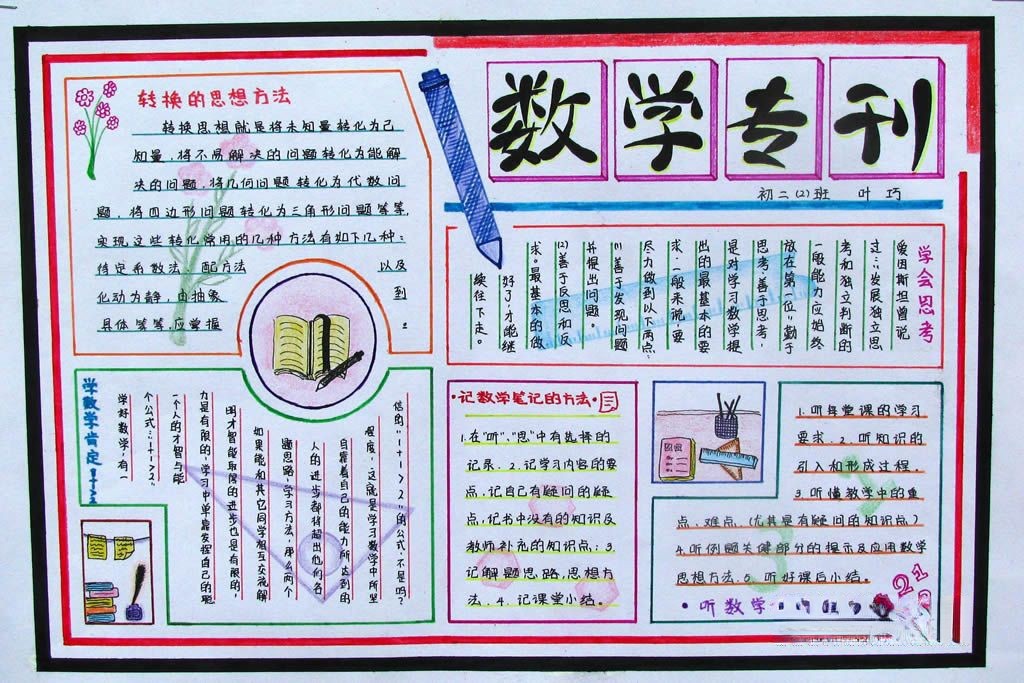 数学专刊
初二⑵班 叶巧
转换的思想方法
转换思想就是将未知量转化为已
知量,将不易解决的问题转化为能解
决的问题,将几何问题转化为代数问
题,将四边形问题转化为三角形问题等等,
实现这些转化常用的几种方法有如下几种:
待定系数法、配方法 以及
化动为静,由抽象 到
具体等等,应掌握 。
学会思考
爱因斯坦曾说
过:"发展独立思
考和独立判断的
一般能力应始终
放在第一位"勤于
思考,善于思考,
是对学习数学提
出的最基本的要
求,一般来说,要
尽力做到以下两点:
⑴善于发现问题
并提出问题。
⑵善于反思和反
求。最基本的做
好了,才能继
续往下走。
学数学肯定1+1>2
学好数学,有一
个公式:"1+1>2"
一个人的才智与能
力是有限的,学习中单靠发挥自己的聪
明才智能取得的进步也是有限的,
如果能和其它同学相互交流解
题思路,学习方法,那么两个
人的进步都将超出他们各
自靠着自己的能力所达到的
程度,这就是学习数学中所坚
信的"1+1>2"的公式,不是吗?
·记数学笔记的方法·
1.在"听","思"中有选择的
记录。2.记学习内容的要
点,记自己有疑问的疑
点,记书中没有的知识及
教师补充的知识点;3.
记解题思路,思想方
法。4.记课堂小结。
1.听每堂课的学习
要求.2.听知识的
引入和形成过程.
3.听懂教学中的重
点、难点(尤其是有疑问的知识点)
4.听例题关键部分的提示及应用数学
思想方法.5.听好课后小结。
·听数学